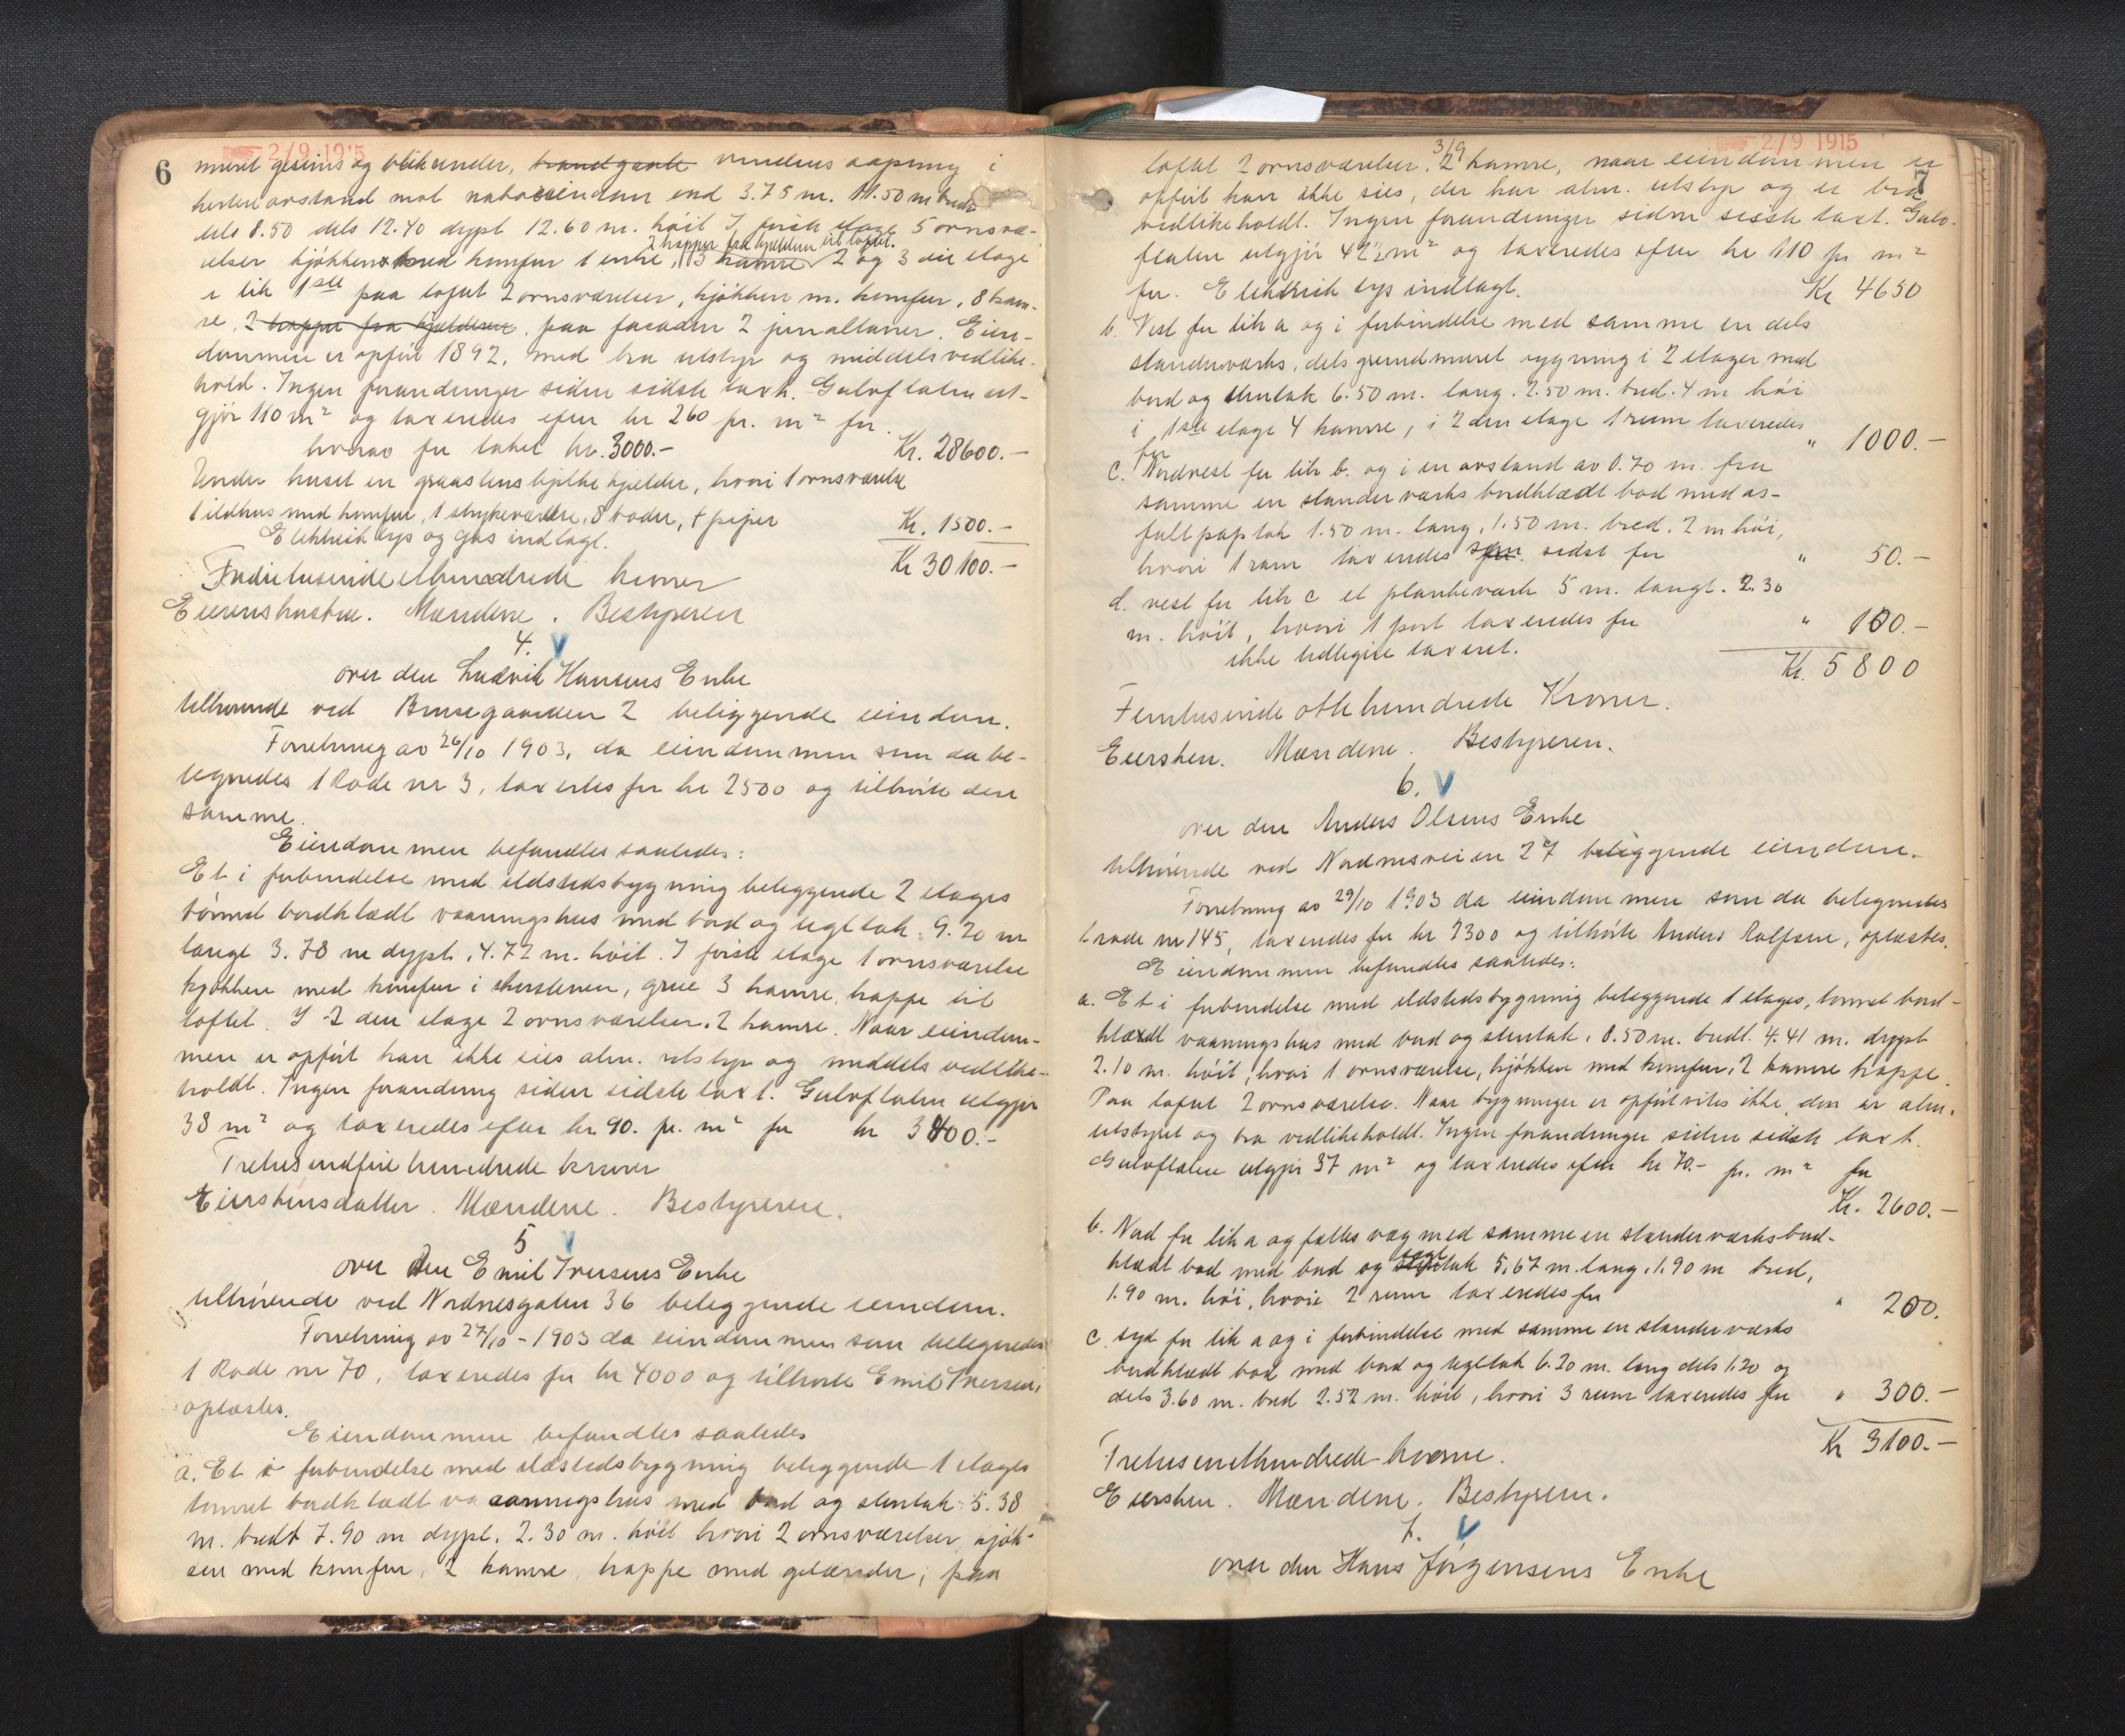 6
2/9 1915
muret gesims og blikrender, brandgavle vinduus aapning i
kortere avstand mot naboeiendom end 3.75 m. 11.50 m bredt
dels 8.50 dels 12.40 dypt 12.60 m. høit I første etage 5 ornsvæ-
2 trapper fra kjelderen til loftet.
relser kjøkken med komfur 1 entre, 3 kamre 2 og 3 die etage
er lik 1ste paa loftet 2 ornsværelser, kjøkken m. komfur, 8 kam-
re, 2 trapper fra kjelderen paa facaden 2 jernaltaner. Eien-
dommen er opført 1892, med bra utstyr og middels vedlike-
hold. Ingen forandringer siden sidste taxt. Gulvflaten ut-
gjør 110 m² og taxeredes efter kr 260 pr. m² for
hvorav for taket kr. 3000.- Kr. 28600.-
Under huset en graastens hjelke kjelder, hvori 1 ornsværelse
1 ildhus med komfur, 1 strykeværelse, 8 boder, + piper Kr. 1500.-
Elektrisk lys og gas indlagt.
Kr 30100.-
Tredivetusindeethundrede kroner
Eierens hustru. Mændene. Bestyreren
4. V
over den Ludvik Hansens Enke
tilhørende ved Brusegaarden 2 beliggende eiendom.
Forretning av 26/10 1903, da eiendommen som da be-
tegnedes 1 Rode nr 3, taxertes for kr 2500 og tilhørte den
samme.
Eiendommen befandtes saaledes:
Et i forbindelse med ildstedsbygning beliggende 2 etages
tømret bordklædt vaaningshus med bord og tegltak. 9.20 m
langt 3.78 m dypt, 4.72 m. høit. I første etage 1 ornsværelse
kjøkken med komfur i skorstenen, grue 3 kamre, trappe til
loftet. I 2 den etage 2 ornsværelser, 2 kamre. Naar eiendom-
men er opført kan ikke sies alm. utstyr og middels vedlike-
holdt. Ingen forandring siden sidste taxt. Gulvflaten utgjør
38 m² og taxeredes efter kr. 90. pr. m² for kr 3400.-
Tretusindfirehundrede kroner
Eierskens datter. Mændene. Bestyreren.
5 V
over den Emil Iversens Enke
tilhørende ved Nordnesgaten 36 beliggende eiendom.
Forretning av 27/10 - 1903 da eiendommen som betegnedes
1 Rode nr 70, taxeredes for kr 4000 og tilhørte Emil Iversen,
oplæstes.
Eiendommen befandtes saaledes
a. Et i forbindelse med ildstedsbygning beliggende 1 etages
tømret bordklædt vaaningshus med bord og stentak 5.38
m. bredt 7.90 m dypt, 2.30 m. høit hvori 2 ornsværelser, kjøk-
ken med komfur, 2 kamre, trappe med gelænder; paa
2/9 1915
7
3/9
loftet 2 ornsværelser. 2 kamre, naar eiendommen er
opført kan ikke sies, der har alm. utstyr og er bra
vedlikeholdt. Ingen forandringer siden sidste taxt. Gulv-
flaten utgjør 42½ m² og taxeredes efter kr 110 pr m²
for. Elektrisk lys indlagt. Kr 4650
b. Vest for lit a og i forbindelse med samme en dels
standerværks, dels grundmuret bygning i 2 etager med
bord og stentak 6.50 m. lang. 2.50 m. bred. 4 m høi
i 1ste etage 4 kamre, i 2 den etage 1 rum taxeredes
for " 1000.-
c. Nordvest for lit b. og i en avstand av 0.70 m. fra
samme en standerværks bordklædt bod med as-
faltpaptak 1.50 m. lang, 1.50 m. bred. 2 m høi,
hvori 1 rum taxeredes som sidst for " 50.-
d. vest for lit c et plankeværk 5 m. langt. 2.30
m. høit, hvori 1 port taxeredes for " 100.-
ikke tidligere taxeret.
Kr. 5800
Femtusinde ottehundrede Kroner.
Eiersken. Mændene. Bestyreren.
6. V
over den Anders Olsens Enke
tilhørende ved Nordnesveien 27 beliggende eiendom.
Forretning av 29/10 1903 da eiendommen som da betegnedes
1 rode nr 145, taxeredes for kr 2300 og tilhørte Anders Rolfsen, oplæstes.
Eiendommen befandtes saaledes:
a. Et i forbindelse med ildstedsbygning beliggende 1 etages, tømret bord-
klædt vaaningshus med bord og stentak. 8.50 m. bredt. 4.41 m. dypt
2.10 m. høit, hvori 1 ornsværelse, kjøkken med komfur, 2 kamre trappe.
Paa loftet 2 ornsværelse. Naar bygningen er opført vites ikke, den er alm.
utstyret og bra vedlikeholdt. Ingen forandringer siden sidste taxt.
Gulvflaten utgjør 37 m² og taxeredes efter kr 70.- pr. m² for
Kr. 2600.-
b. Nord for lit a og fælles væg med samme en standerværks bord-
tegl
klædt bod med bord og stentak 5.67 m. lang, 1.90 m bred,
1.90 m. høi, hvori 2 rum taxeredes for " 200.
c. syd for lit a og i forbindelse med samme en standerværks
bordklædt bod med bord og tegltak 6.20 m. lang dels 1.20 og
dels 3.60 m. bred 2.52 m. høit, hvori 3 rum taxeredes for " 300.-
Kr 3100.-
Tretusenethundrede kroner.
Eiersken. Mændene. Bestyreren.
7. V
over den Hans Jørgensens Enke